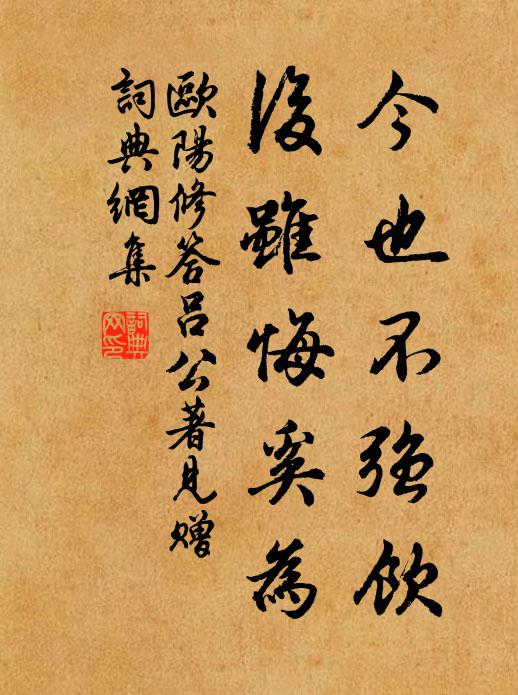 今也不強飲
後雖悔奚為
歐陽修答呂公著見贈
詞典網集
詞典
网印